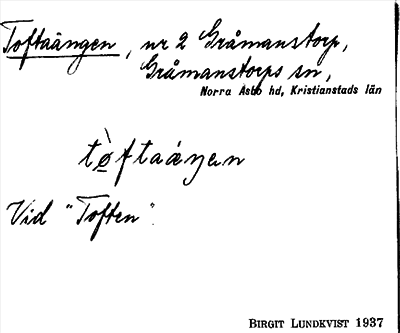 Toftaängen, nr 2 Gråmanstorp,
Gråmanstorps sn,
Norra Åsbo hd, Kristianstads län
tø̀ftaáŋen
Vid "Toften".
BIRGIT LUNDKVIST 1937